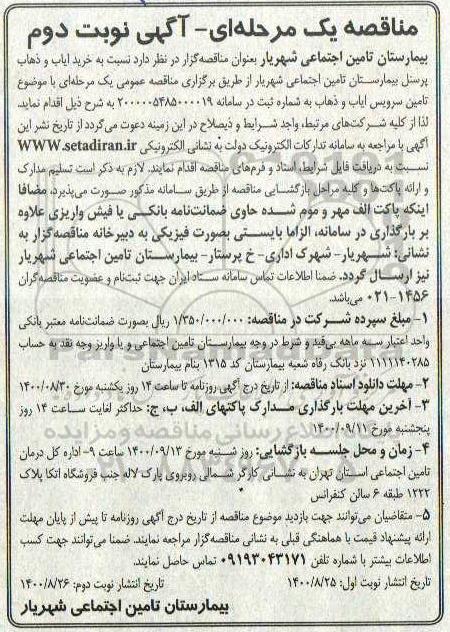 مناقصه یک مرحله‌ای- آگهی نوبت دوم
بیمارستان تامین اجتماعی شهریار بعنوان مناقصه‌گزار در نظر دارد نسبت به خرید ایاب و ذهاب
پرسنل بیمارستان تامین اجتماعی شهریار از طریق برگزاری مناقصه عمومی یک مرحله‌ای با موضوع
تامین سرویس ایاب و ذهاب به شماره ثبت در سامانه ۲۰۰۰۰۰۵۴۸۵۰۰۰۰۱۹ به شرح ذیل اقدام نماید.
لذا از کلیه شرکت‌های مرتبط، واجد شرایط و ذیصلاح در این زمینه دعوت می‌گردد از تاریخ نشر این
آگهی با مراجعه به سامانه تدارکات الکترونیک دولت به نشانی الکترونیکی WWW.setadiran.ir
نسبت به دریافت فایل شرایط، اسناد و فرم‌های مناقصه اقدام نمایند. لازم به ذکر است تسلیم مدارک
و ارائه پاکت‌ها و کلیه مراحل بازگشایی مناقصه از طریق سامانه مذکور صورت می‌پذیرد، مضافا
اینکه پاکت الف مهر و موم شده حاوی ضمانت‌نامه بانکی یا فیش واریزی علاوه
بر بارگذاری در سامانه، الزاما بایستی بصورت فیزیکی به دبیرخانه مناقصه‌گزار به
نشانی: شهریار- شهرک اداری- خ پرستار- بیمارستان تامین اجتماعی شهریار
نیز ارسال گردد. ضمنا اطلاعات تماس سامانه ستاد ایران جهت ثبت‌نام و عضویت مناقصه‌گران
۰۲۱-۱۴۵۶ می‌باشد.
۱- مبلغ سپرده شرکت در مناقصه: ۱/۳۵۰/۰۰۰/۰۰۰ ریال بصورت ضمانت‌نامه معتبر بانکی
واجد اعتبار سه ماهه بی‌قید و شرط در وجه بیمارستان تامین اجتماعی و یا واریز وجه نقد به حساب
۱۱۱۱۱۴۰۲۸۵ نزد بانک رفاه شعبه بیمارستان کد ۱۳۱۵ بنام بیمارستان
۲- مهلت دانلود اسناد مناقصه: از تاریخ درج آگهی روزنامه تا ساعت ۱۴ روز یکشنبه مورخ ۱۴۰۰/۰۸/۳۰
۳- آخرین مهلت بارگذاری مدارک پاکتهای الف، ب، ج: حداکثر لغایت ساعت ۱۴ روز
پنجشنبه مورخ ۱۴۰۰/۰۹/۱۱
۴- زمان و محل جلسه بازگشایی: روز شنبه مورخ ۱۴۰۰/۰۹/۱۳ ساعت ۹- اداره کل درمان
تامین اجتماعی استان تهران به نشانی: کارگر شمالی روبروی پارک لاله جنب فروشگاه اتکا پلاک
۱۲۲۲ طبقه ۶ سالن کنفرانس
۵- متقاضیان می‌توانند جهت بازدید موضوع مناقصه از تاریخ درج آگهی روزنامه تا پیش از پایان مهلت
ارائه پیشنهاد قیمت با هماهنگی قبلی به نشانی مناقصه‌گزار مراجعه نمایند. ضمنا می‌توانند جهت کسب
اطلاعات بیشتر با شماره تلفن ۰۹۱۹۳۰۴۳۱۷۱ تماس حاصل نمایند.
تاریخ انتشار نوبت اول: ۱۴۰۰/۸/۲۵ تاریخ انتشار نوبت دوم: ۱۴۰۰/۸/۲۶
بیمارستان تامین اجتماعی شهریار